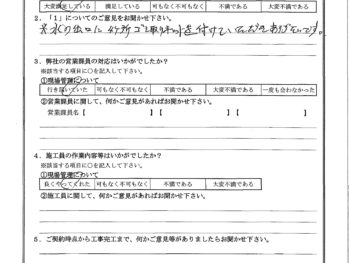 大変満足している 満足している 可もなく不可もなく 不満である 大変不満である
2．「1」についてのご意見をお聞かせ下さい。
水の出口に4ヶ所ゴミ取りネットを付けていただきありがたいです。
3．弊社の営業課員の対応はいかがでしたか？
※該当する項目に○を記入して下さい。
①現場管理について
行き届いていた 可もなく不可もなく 不満である 大変不満である 一度も会わなかった
②営業課員に関して、何かご意見があればお聞かせ下さい。
営業課員名【 】【 】【 】
4．施工員の作業内容等はいかがでしたか？
※該当する項目に○を記入して下さい。
①現場管理について
良くやってくれた 可もなく不可もなく 不満である 大変不満である
②施工員に関して、何かご意見があればお聞かせ下さい。
5．ご契約時点から工事完工まで、何かご意見等がありましたらお聞かせ下さい。